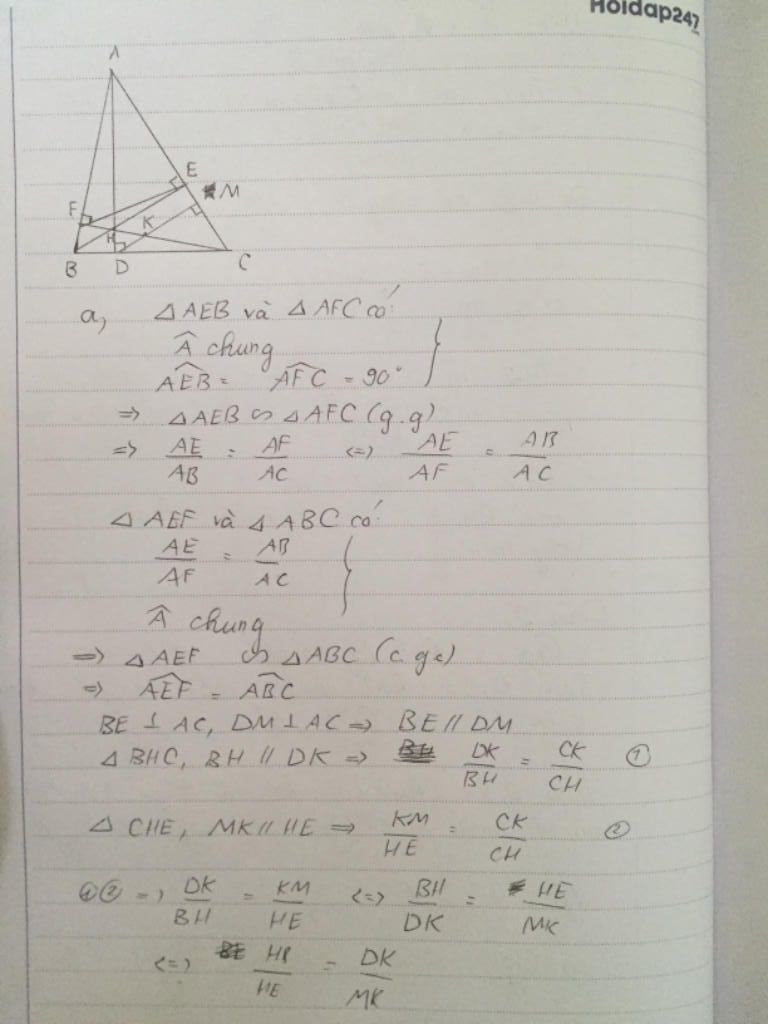 Hoidap247
A
E
M
F
H
K
B
D
C
a, △AEB và △AFC có:
Â chung
\widehat{AEB} = \widehat{AFC} = 90°
=> △AEB ∽ △AFC (g.g)
=> AE/AB = AF/AC <=> AE/AF = AB/AC
△AEF và △ABC có:
AE/AF = AB/AC
Â chung
=> △AEF ∽ △ABC (c.g.c)
=> \widehat{AEF} = \widehat{ABC}
BE ⊥ AC, DM ⊥ AC => BE // DM
△BHC, BH // DK => DK/BH = CK/CH ①
△CHE, MK // HE => KM/HE = CK/CH ②
①② => DK/BH = KM/HE <=> BH/DK = HE/MK
<=> HB/HE = DK/MK